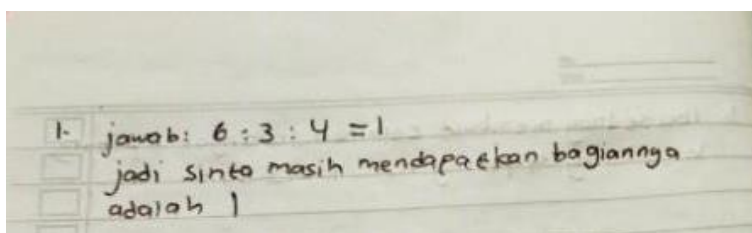 1. jawab: 6 : 3 : 4 = 1
jadi sinta masih mendapatkan bagiannya
adalah 1